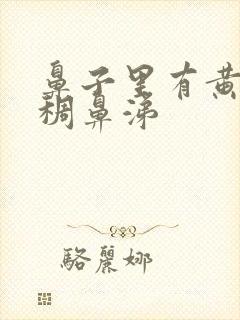 鼻子里有黄
稠鼻涕
駱麗娜